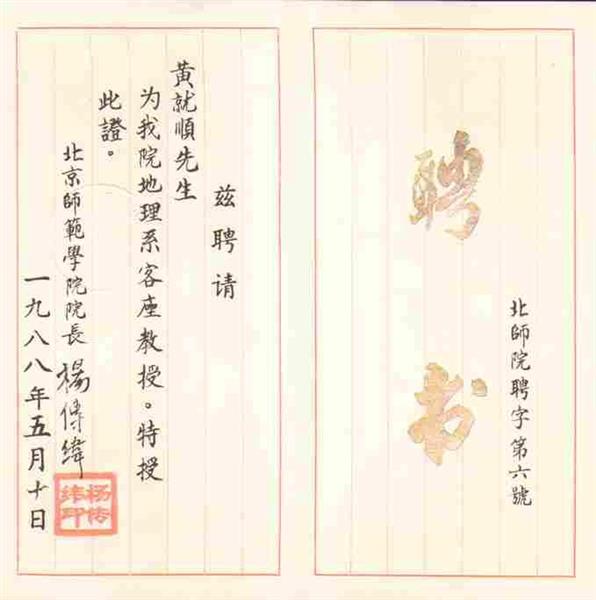 聘书
北師院聘字第六號
兹聘请
黄就順先生
为我院地理系客座教授。特授
此證。
北京師範學院院長 楊傳緯
一九八八年五月十日
杨传
纬印